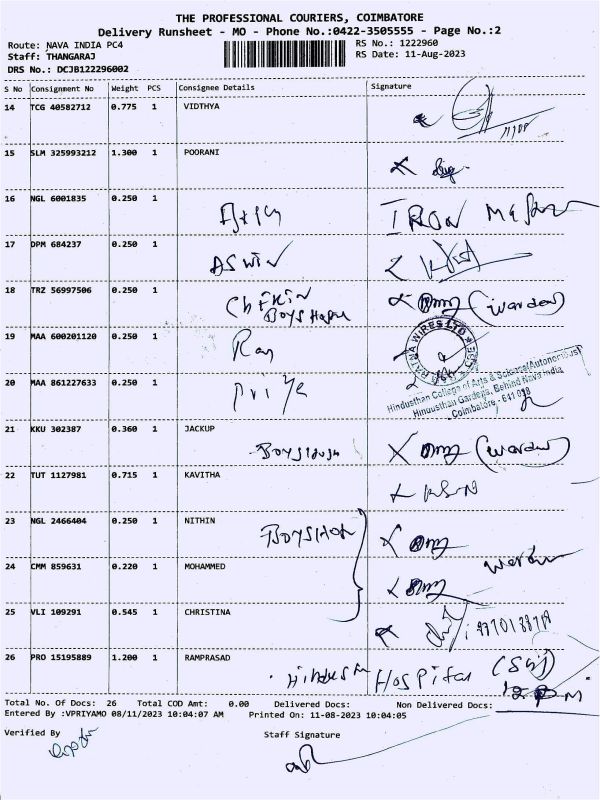 THE PROFESSIONAL COURIERS, COIMBATORE
Delivery Runsheet - MO - Phone No.:0422-3505555 - Page No.:2
Route: NAVA INDIA PC4 RS No.: 1222960
Staff: THANGARAJ RS Date: 11-Aug-2023
DRS No.: DCJB122296002
S No Consignment No Weight PCS Consignee Details Signature
14 TCG 40582712 0.775 1 VIDTHYA
15 SLM 325993212 1.300 1 POORANI
16 NGL 6001835 0.250 1 IRON
17 DPM 684237 0.250 1 ASWIN
18 TRZ 56997506 0.250 1 (warden)
BOYS
19 MAA 600201120 0.250 1 RATNA WIRES LTD
20 MAA 861227633 0.250 1 Priya
Hindusthan College of Arts & Science(Autonomous)
Hindusthan Gardens, Behind Nava India
Coimbatore - 641 028
21 KKU 302387 0.360 1 JACKUP (warden)
22 TUT 1127981 0.715 1 KAVITHA
23 NGL 2466404 0.250 1 NITHIN
24 CMM 859631 0.220 1 MOHAMMED
25 VLI 109291 0.545 1 CHRISTINA
26 PRO 15195889 1.200 1 RAMPRASAD
Hospital
Total No. Of Docs: 26 Total COD Amt: 0.00 Delivered Docs: Non Delivered Docs:
Entered By :VPRIYAMO 08/11/2023 10:04:07 AM Printed On: 11-08-2023 10:04:05
Verified By Staff Signature